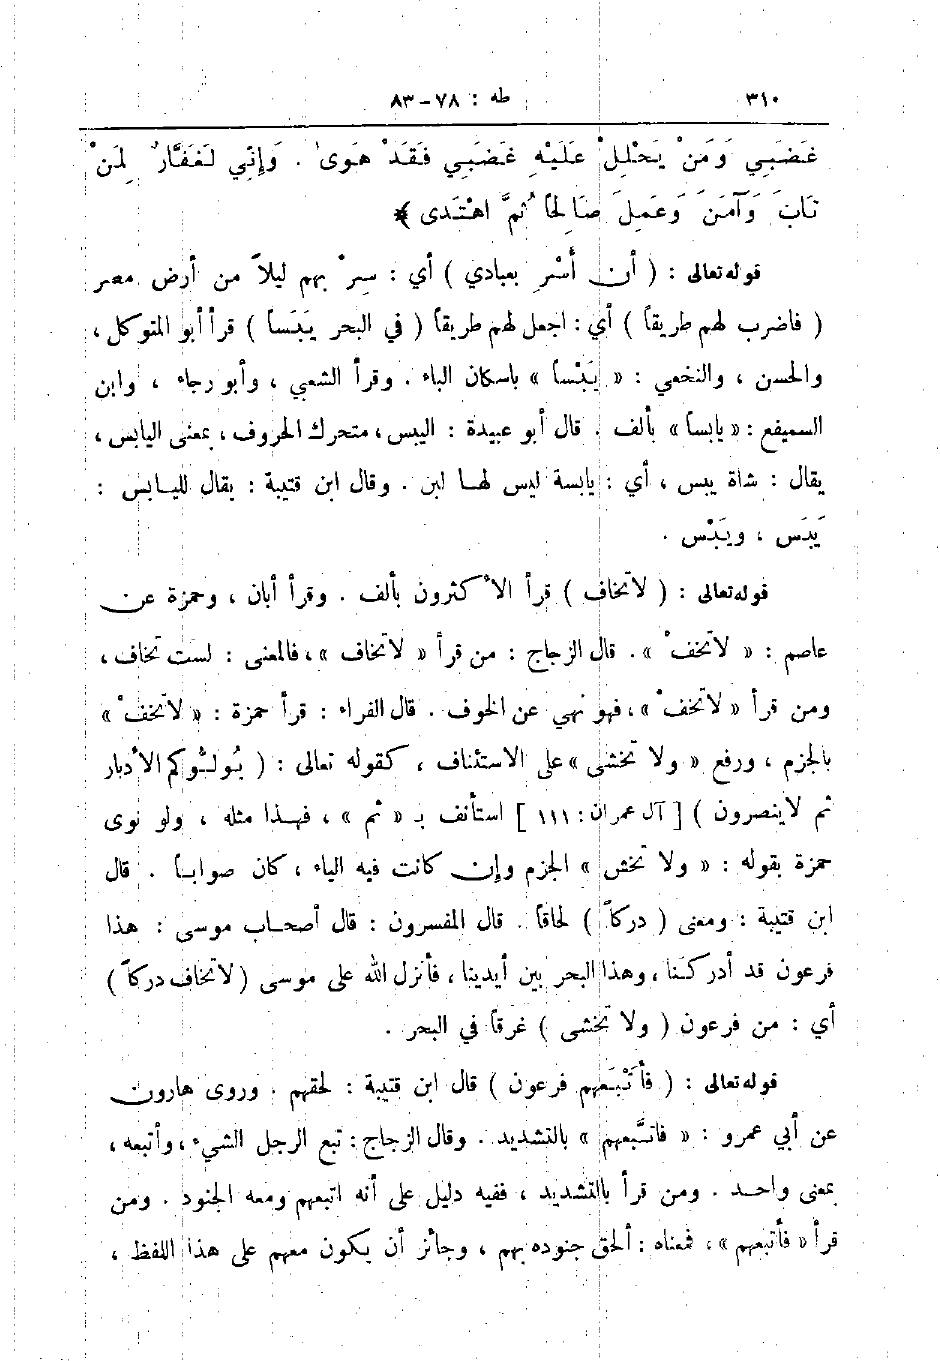 ٣١٠ طه : ٧٨-٨٣
غَضَبِي وَمَنْ يَحْلِلْ عَلَيْهِ غَضَبِي فَقَدْ هَوَىٰ . وَإِنِّي لَغَفَّارٌ لِمَنْ
تَابَ وَآمَنَ وَعَمِلَ صَالِحًا ثُمَّ اهْتَدَى ﴾
قوله تعالى : ( أن أَسْرِ بعبادي ) أي : سِرْ بهم ليلاً من أرض مصر
( فاضرب لهم طريقاً ) أي : اجعل لهم طريقاً ( في البحر يَبَساً ) قرأ أبو المتوكل ،
والحسن ، والنخعي : « يَبْساً » باسكان الباء . وقرأ الشعبي ، وأبو رجاء ، وابن
السميفع : « يابساً » بألف . قال أبو عبيدة : اليبس ، متحرك الحروف ، بمعنى اليابس ،
يقال : شاة يبس ، أي : يابسة ليس لها لبن . وقال ابن قتيبة : يقال لليابس :
يَبَس ، ويَبْس .
قوله تعالى : ( لاتخاف ) قرأ الأكثرون بألف . وقرأ أبان ، وحمزة عن
عاصم : « لاتخفْ » . قال الزجاج : من قرأ « لاتخاف » ، فالمعنى : لست تخاف ،
ومن قرأ « لاتخفْ » ، فهو نهي عن الخوف . قال الفراء : قرأ حمزة : « لاتخفْ »
بالجزم ، ورفع « ولا تخشى » على الاستئناف ، كقوله تعالى : ( يُولُّوكم الأدبار
ثم لاينصرون ) [ آل عمران : ١١١ ] استأنف بـ « ثم » ، فهذا مثله ، ولو نوى
حمزة بقوله : « ولا تخش » الجزم وإن كانت فيه الياء ، كان صواباً . قال
ابن قتيبة : ومعنى ( دركاً ) لحاقاً . قال المفسرون : قال أصحاب موسى : هذا
فرعون قد أدركَنا ، وهذا البحر بين أيدينا ، فأنزل الله على موسى ( لاتخاف دركاً )
أي : من فرعون ( ولا تخشى ) غرقاً في البحر .
قوله تعالى : ( فأَتْبَعهم فرعون ) قال ابن قتيبة : لحقهم . وروى هارون
عن أبي عمرو : « فاتَّبعهم » بالتشديد . وقال الزجاج : تبع الرجل الشيء ، وأتبعه ،
بمعنى واحد . ومن قرأ بالتشديد ، ففيه دليل على أنه اتبعهم ومعه الجنود . ومن
قرأ « فأتبعهم » ، فمعناه : ألحق جنوده بهم ، وجائز أن يكون معهم على هذا اللفظ ،